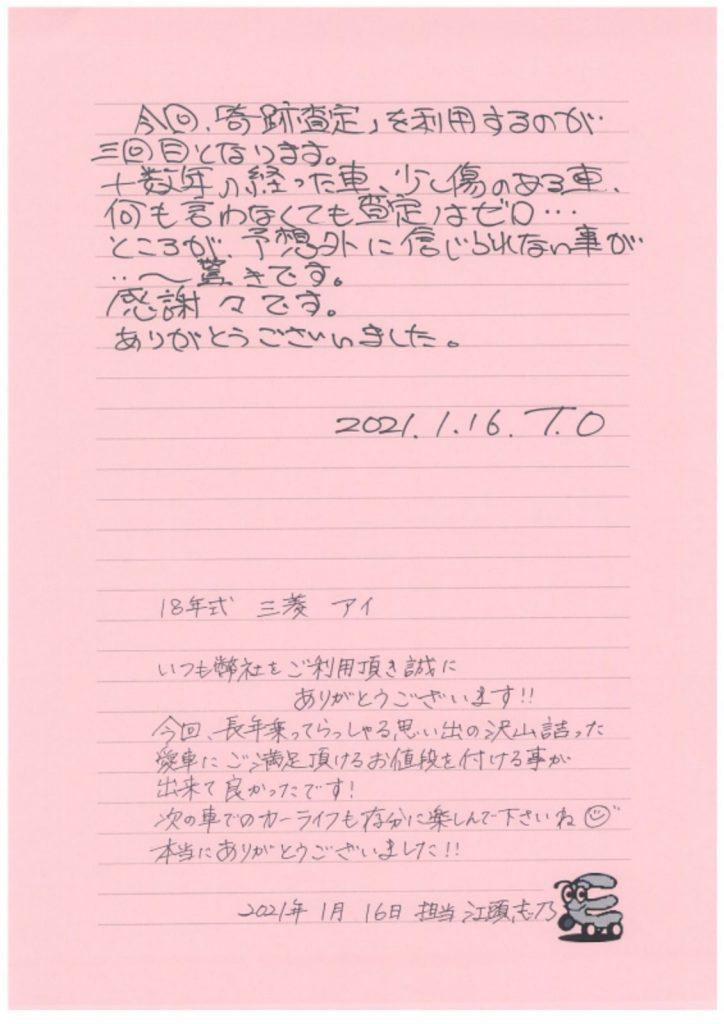 今回、「奇跡査定」を利用するのが
三回目となります。
十数年の経った車、少し傷のある車、
何も言わなくても査定はゼロ…
ところが、予想外に信じられない事が
‥〜驚きです。
感謝々です。
ありがとうございいました。
2021.1.16. T.O
18年式 三菱 アイ
いつも弊社をご利用頂き誠に
ありがとうございます!!
今回、長年乗ってらっしゃる思い出の沢山詰った
愛車にご満足頂けるお値段を付ける事が
出来て良かったです!
次の車でのカーライフも存分に楽しんで下さいね
本当にありがとうございました!!
2021年 1月 16日 担当 江頭志乃